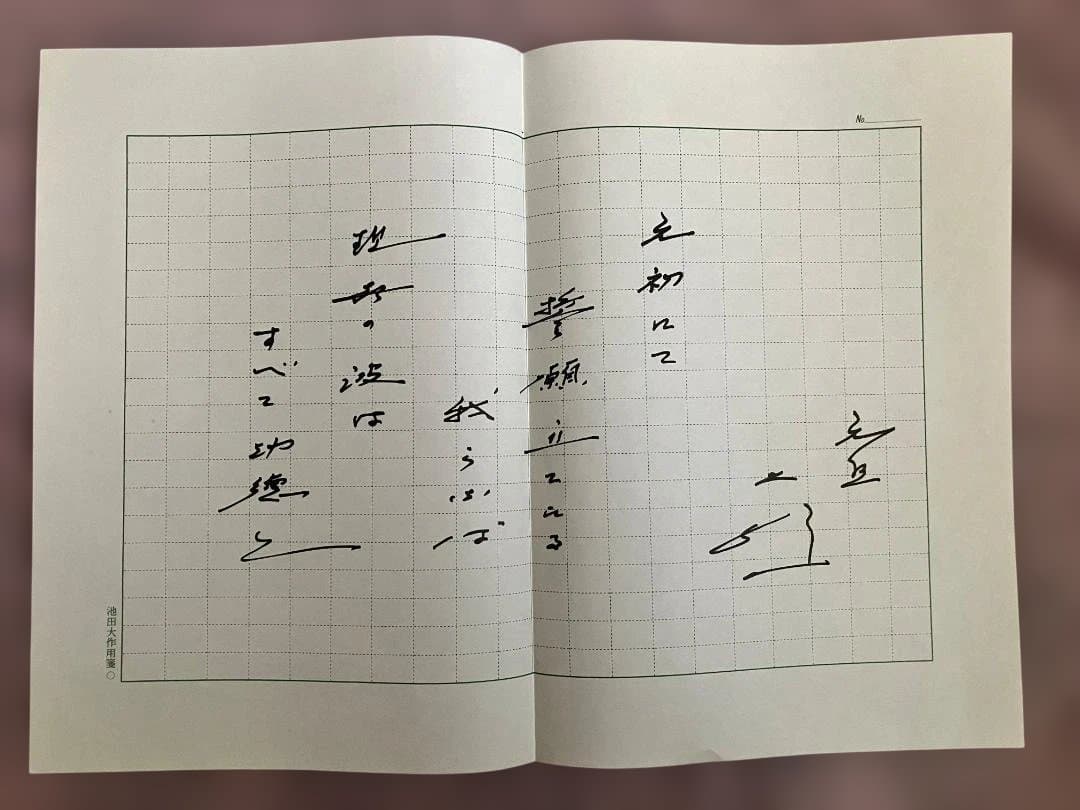 No.
元旦
元初にて
誓願立てたる
我ら
の波は
すべて功徳と
池田大作用箋